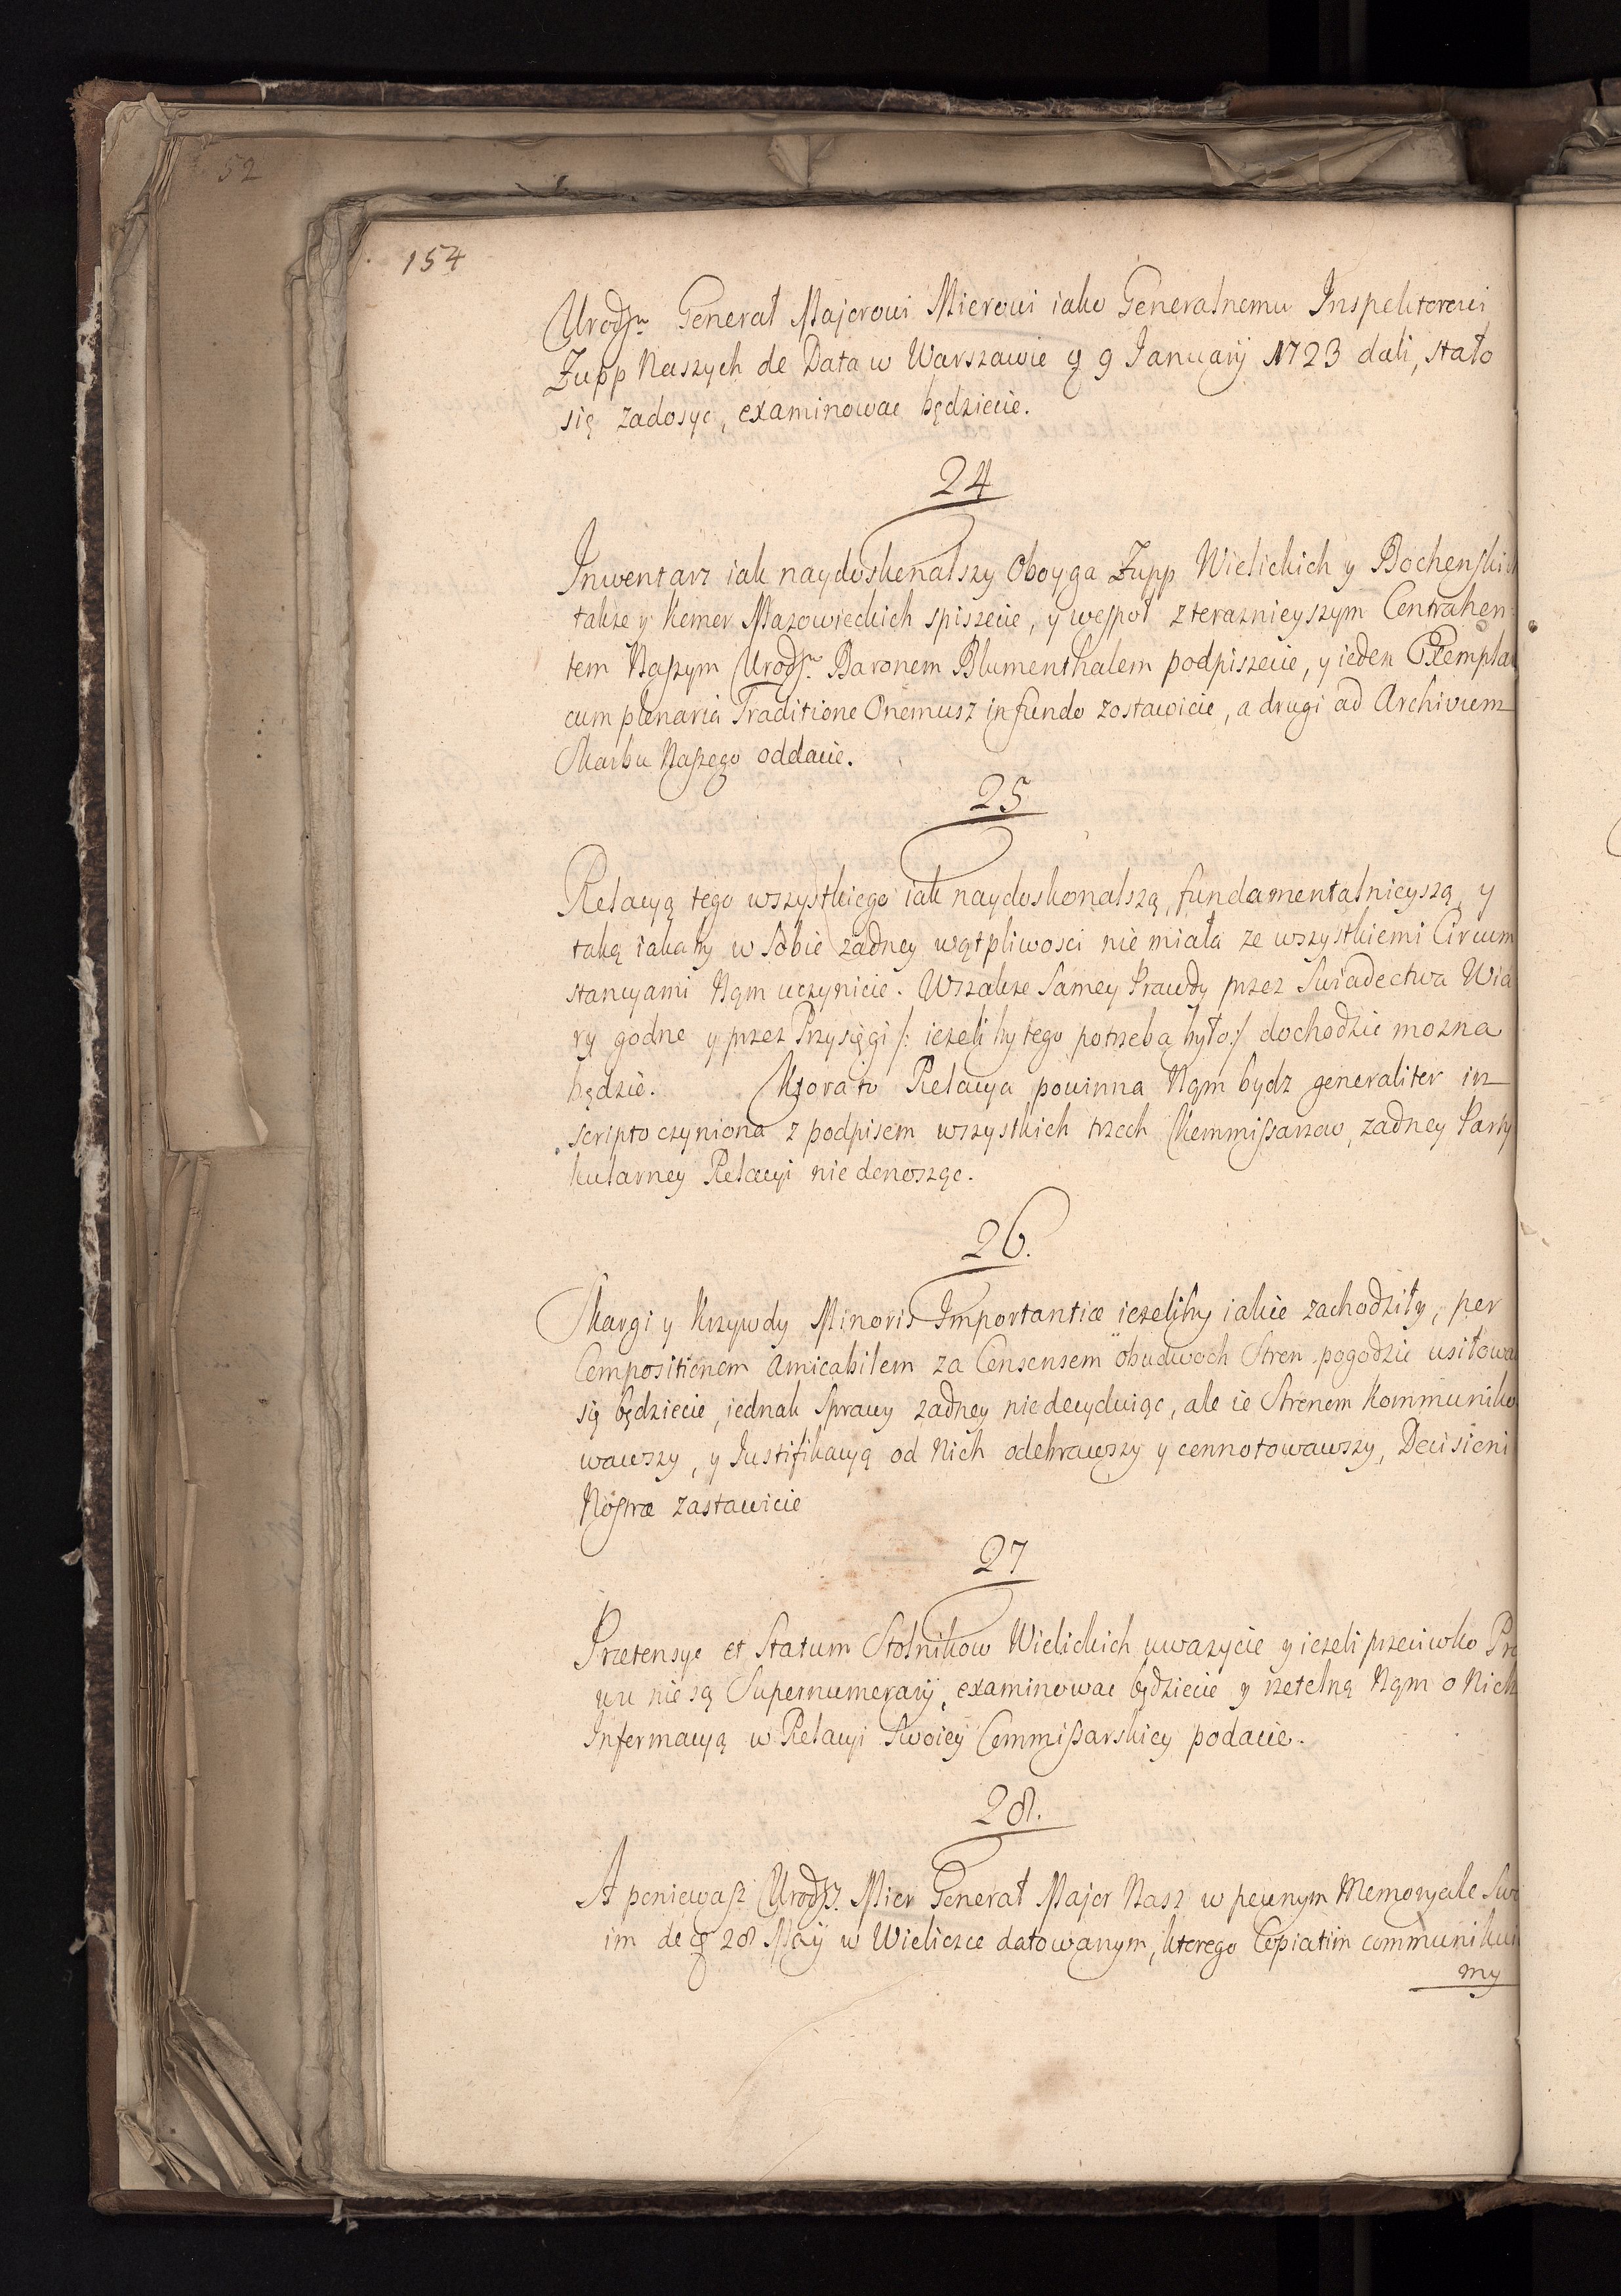 52
154
Urodzu Generał Majorowi Mierowi iako Generalnemu Inspektorowi
Zupp Naszych de Data w Warszawie 9 January 1723 dali, stało
się zadosyc, examinowac będziecie.
24
Inwentarz iak naydoskonalszy Oboyga Zupp Wielickich y Bochenskich
także y Komor Mazowieckich spiszecie, y wespoł z teraznieyszym Contrahen
tem Naszym Urodz. Baronem Blumenthalem podpiszecie, y ieden Exemplar
cum plenaria Traditione Onemusz in fundo zostawicie, a drugi ad Archivum
Skarbu Naszego oddacie.
25
Relacyą tego wszystkiego iak naydoskonalszą, fundamentalnieyszą, y
taką iakaby w sobie żadney wątpliwosci nie miała ze wszystkiemi Circum
stancyami Nąm uczynicie. Wszakze Samey Prawdy przez Swiadectwa Wia
ry godne y przez Przysięgi /: iezeli by tego potrzeba było:/ dochodzic mozna
będzie. Ktora to Relacya powinna Nąm bydz generaliter in
scripto czyniona z podpisem wszystkich trzech Kommissarzow, zadney Party
kularney Relacyi nie donosząc.
26.
Skargi y Krzywdy Minoris Importantiæ ieżeliby iakie zachodziły, per
Compositionem amicabilem za Consensem obudwoch Stron pogodzic usiłowac
się będziecie, iednak Sprawy zadney nie decyduiąc, ale ie Stronom Kommuniko
wawszy, y Justifikacyą od Nich odebrawszy y connotowawszy, Decisioni
Nostræ zastawicie
27
Prætensye et Statum Stolnikow Wielickich uwazycie y ieżeli przeciwko Pra
wu nie są Supernumerarÿ, examinowac będziecie y rzetelną Nąm o Nich
Informacyą w Relacyi Swoiey Commissarskiey podacie.
28.
A poniewasz Urodz. Mier Generał Major Nasz w pewnym Memoryale Swo
im de 28 Maÿ w Wieliczce datowanym, ktorego Copiatim communikui
my